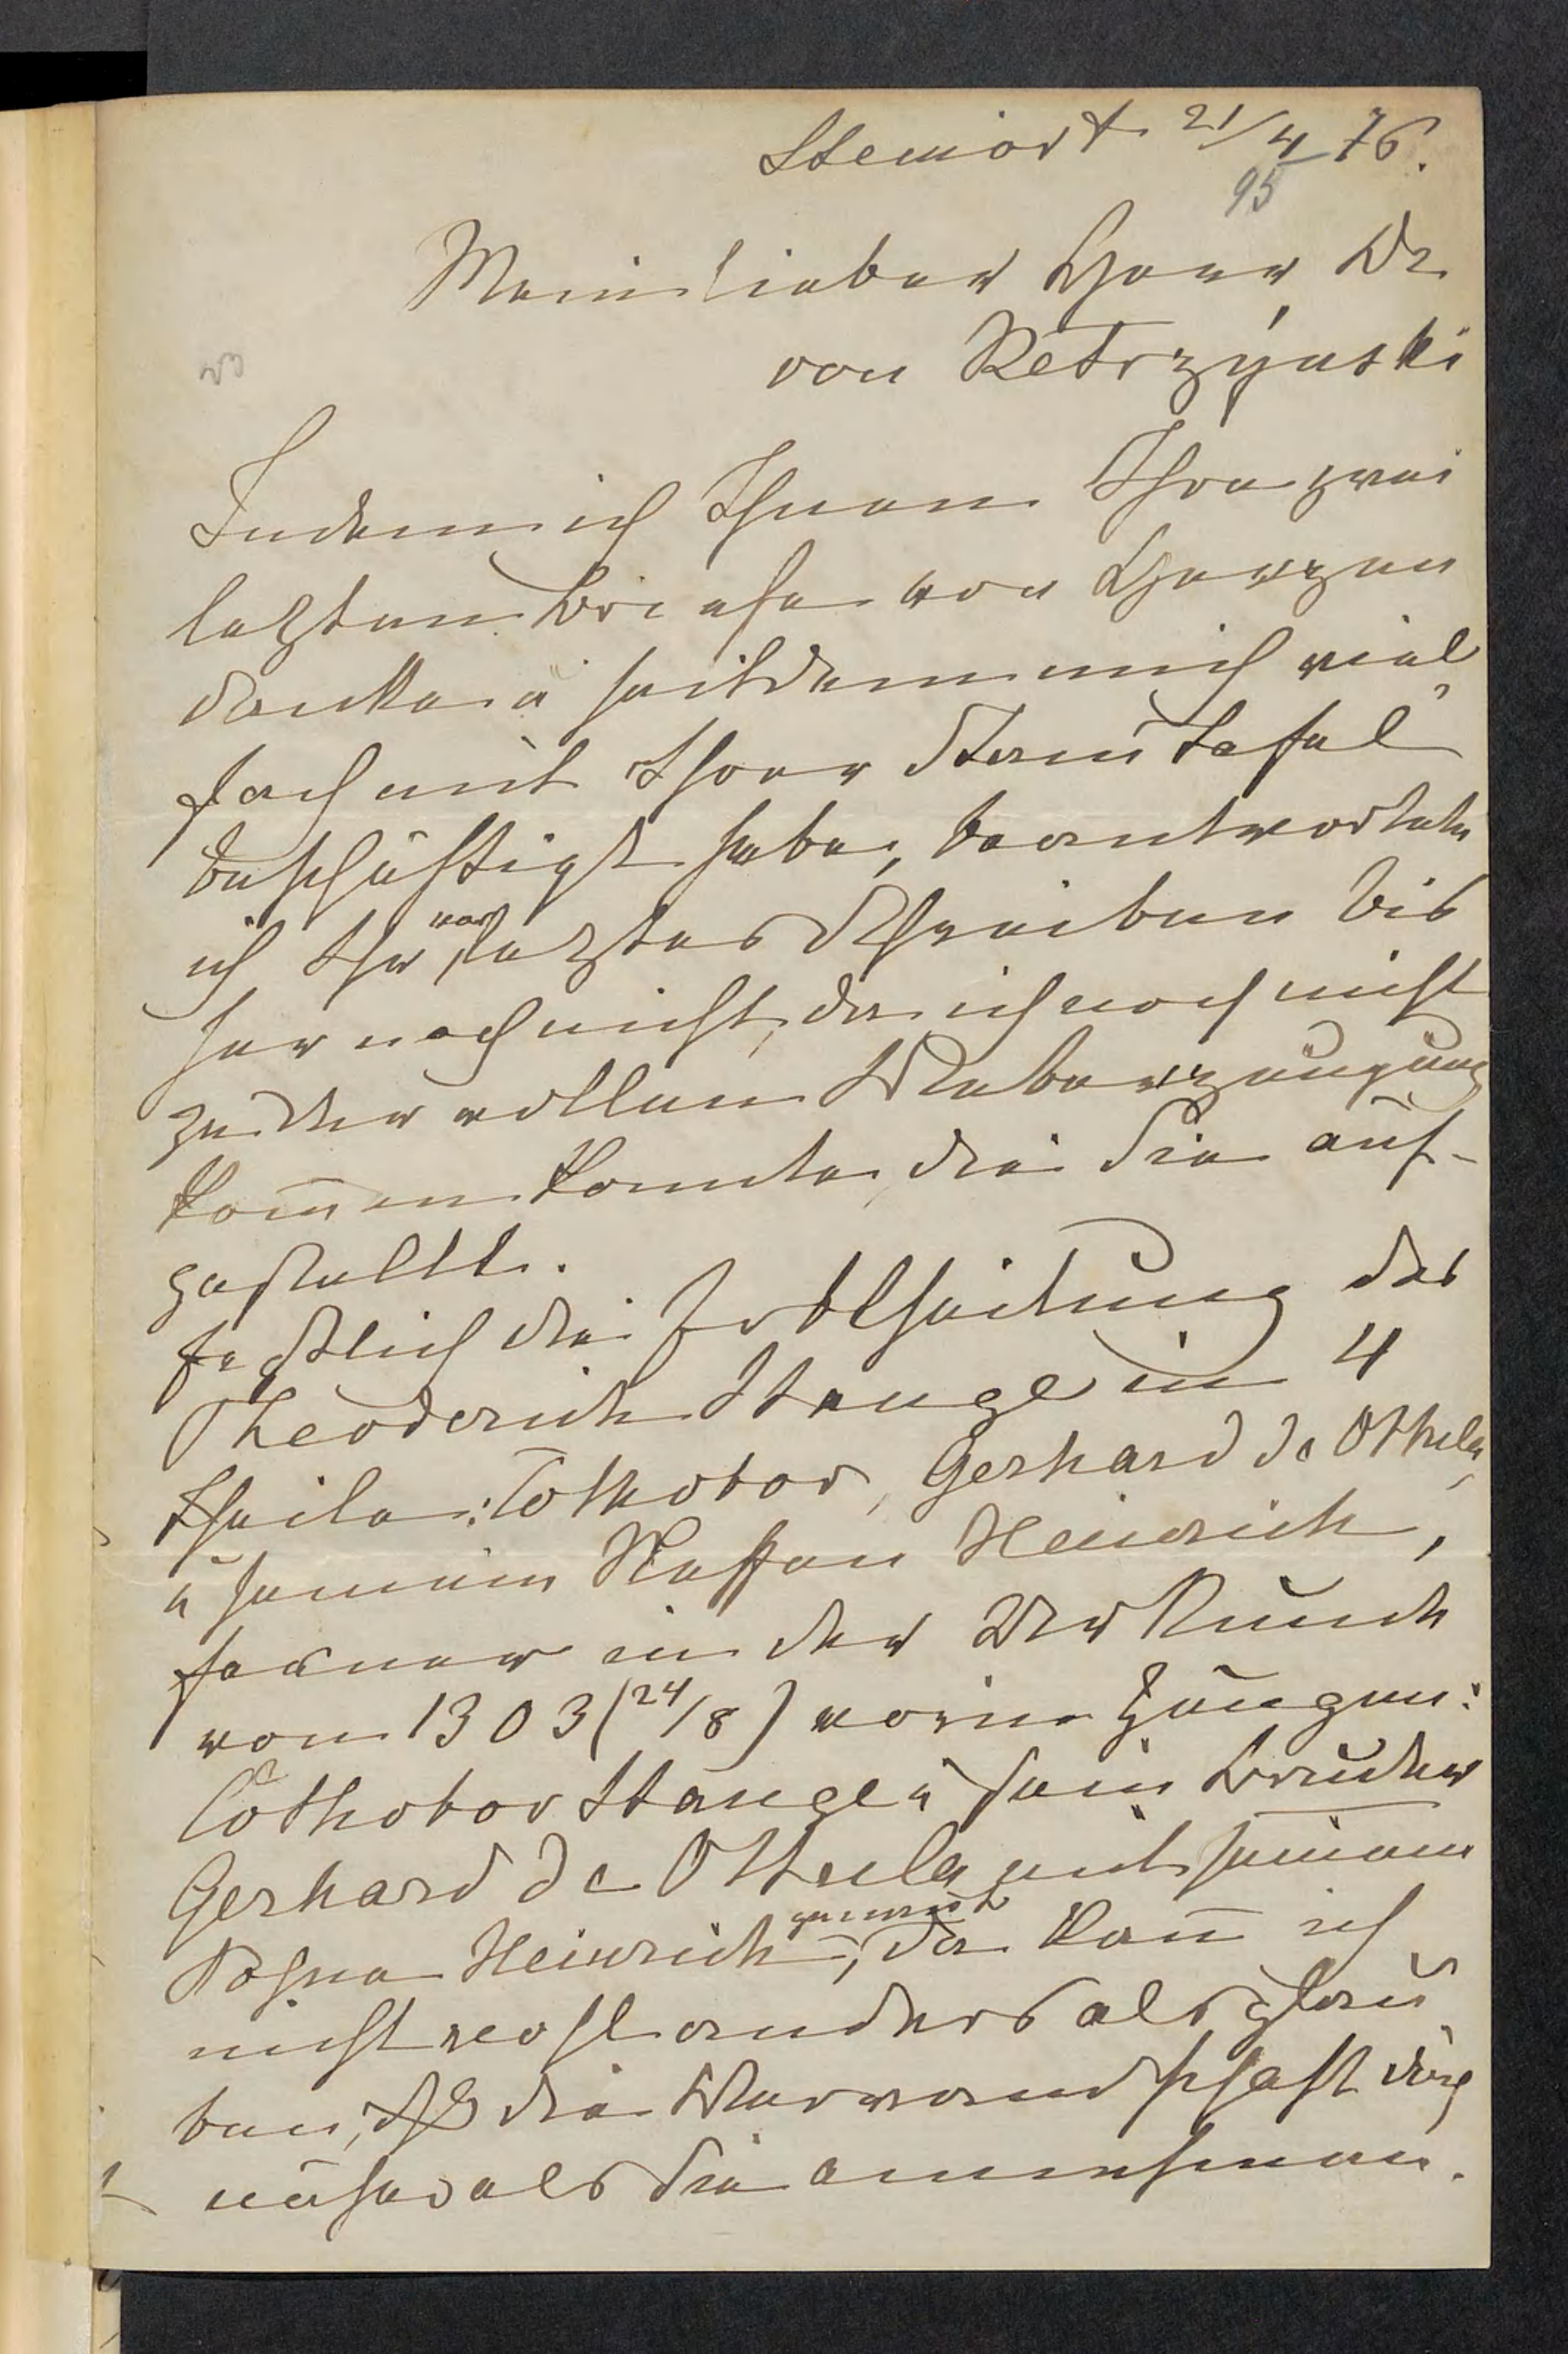 Steinort 21/4 76.
95
Mein lieber Herr Dr
von Ketrzyński
Indem ich Ihnen Ihre zwei
letzten Briefe von Herzen
danke u seitdem mich viel
fach mit Ihrer Stam̄tafel
beschäftigt habe, beantwortete
ich Ihr vorletztes Schreiben bis
her noch nicht, da ich noch nicht
zu der vollen Ueberzeugung
kom̄en konnte, die Sie auf-
gestellt.
die Erbtheilung des
Theoderich Stange in 4
Theile: Tothobor, Gerhard de Othula,
u seinem Neffen Heinrich,
ferner in der Urkunde
von 1303 (24/8) worin Zeugen:
Tothobor Stange u sein Bruder
Gerhard de Ottula mit seinem
Sohne Heinrich genannt, da kan̄ ich
nicht wohl anders als glau
ben, dß die Verwandschaft eine
näher als Sie annehmen.